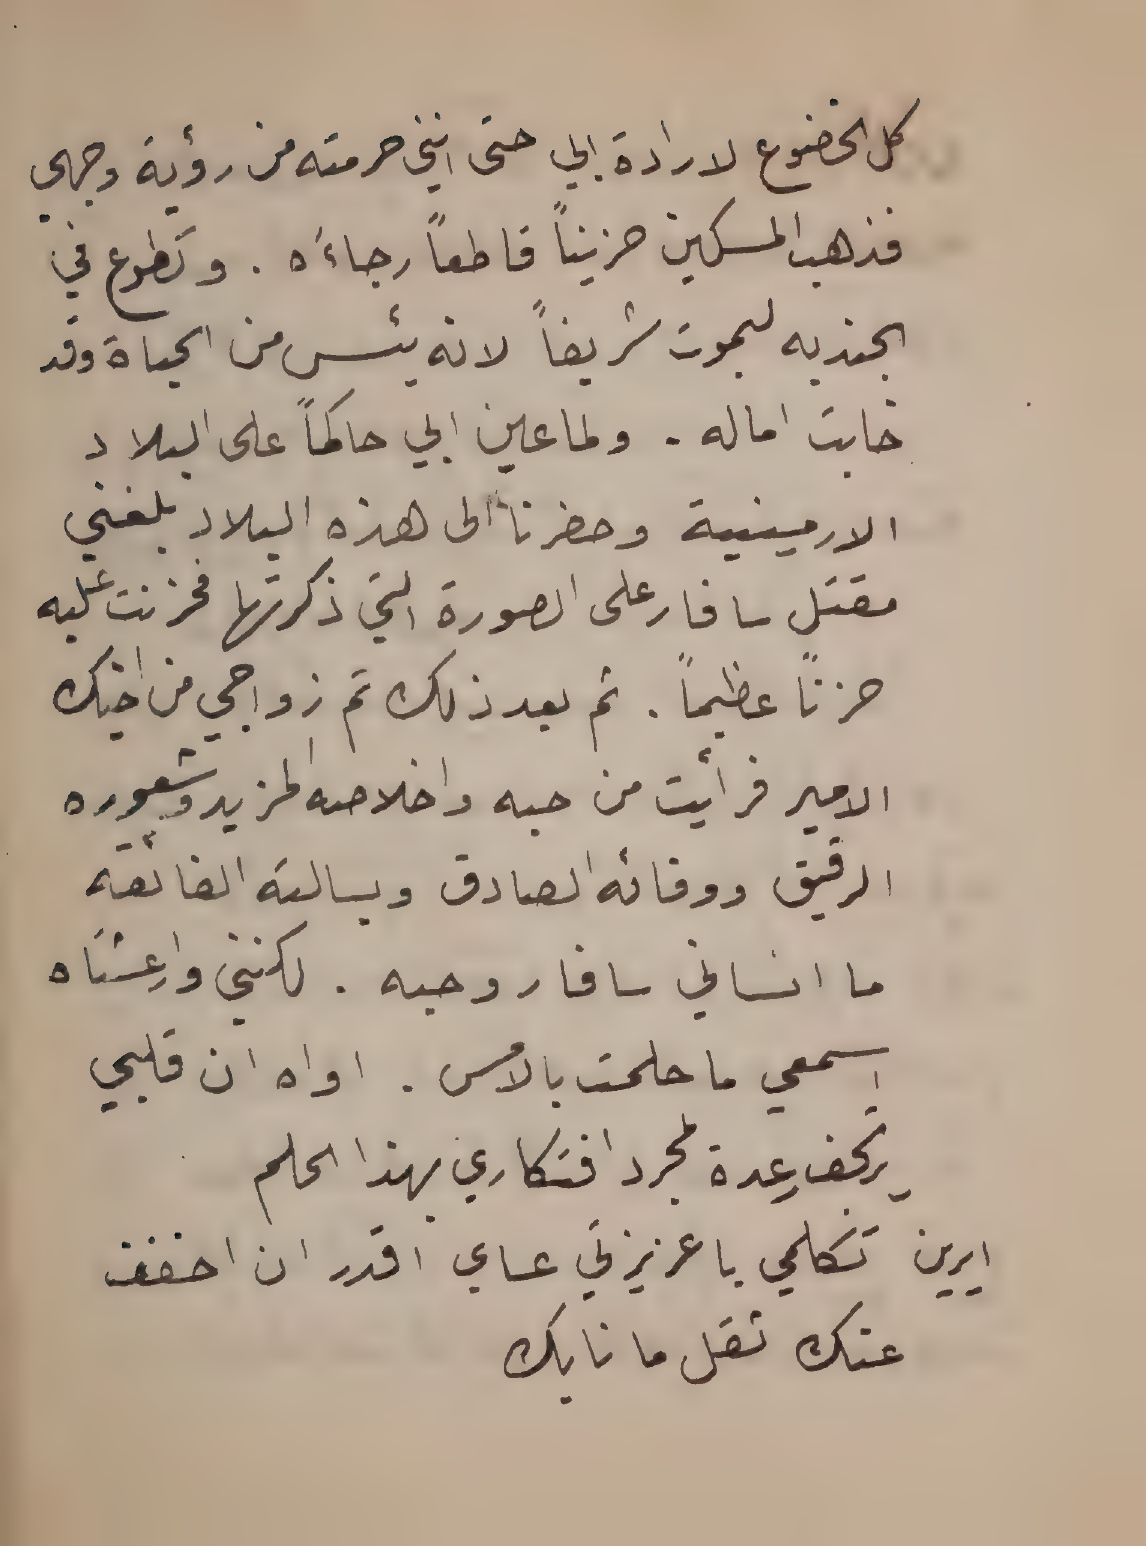 كل الخضوع لارادة ابي حتى انني حرمته من رؤية وجهي
فذهب المسكين حزيناً قاطعاً رجاءَه . وتطوع في
الجنديه ليموت شريفاً لانه يئس من الحياة وقد
خابت اماله . ولما عين ابي حاكماً على البلاد
الارمينية وحضرنا الى هذه البلاد بلغني
مقتل سافار على الصورة التي ذكرتها فحزنت عليه
حزناً عظيماً . ثم بعد ذلك تم زواجي من اخيك
الامير فرأيت من حبه واخلاصه المزيد وشعوره
الرقيق ووفائه الصادق وبسالته الفائقة
ما انساني سافار وحبه . لكنني وارعشتاه
اسمعي ما حلمت بالأمس . اواه ان قلبي
يرتجف عدة لمجرد افتكاري بهذا الحلم
ايرين تكلمي يا عزيزتي عساي اقدر ان اخفف
عنك ثقل ما نابك